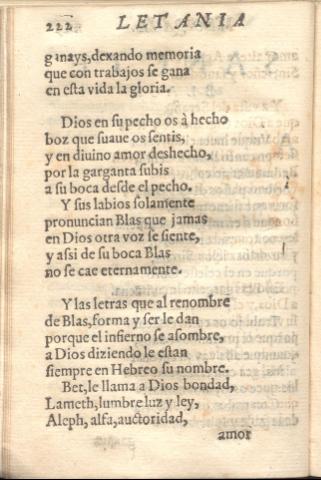 222 LETANIA
ganays, dexando memoria
que con trabajos se gana
en esta vida la gloria.
Dios en su pecho os à hecho
boz que suaue os sentis,
y en diuino amor deshecho,
por la garganta subis
a su boca desde el pecho.
Y sus labios solamente
pronuncian Blas que jamas
en Dios otra voz se siente,
y assi de su boca Blas
no se cae eternamente.
Y las letras que al renombre
de Blas, forma y ser le dan
porque el infierno se asombre,
a Dios diziendo le estan
siempre en Hebreo su nombre.
Bet, le llama a Dios bondad,
Lameth, lumbre luz y ley,
Aleph, alfa, auctoridad,
amor